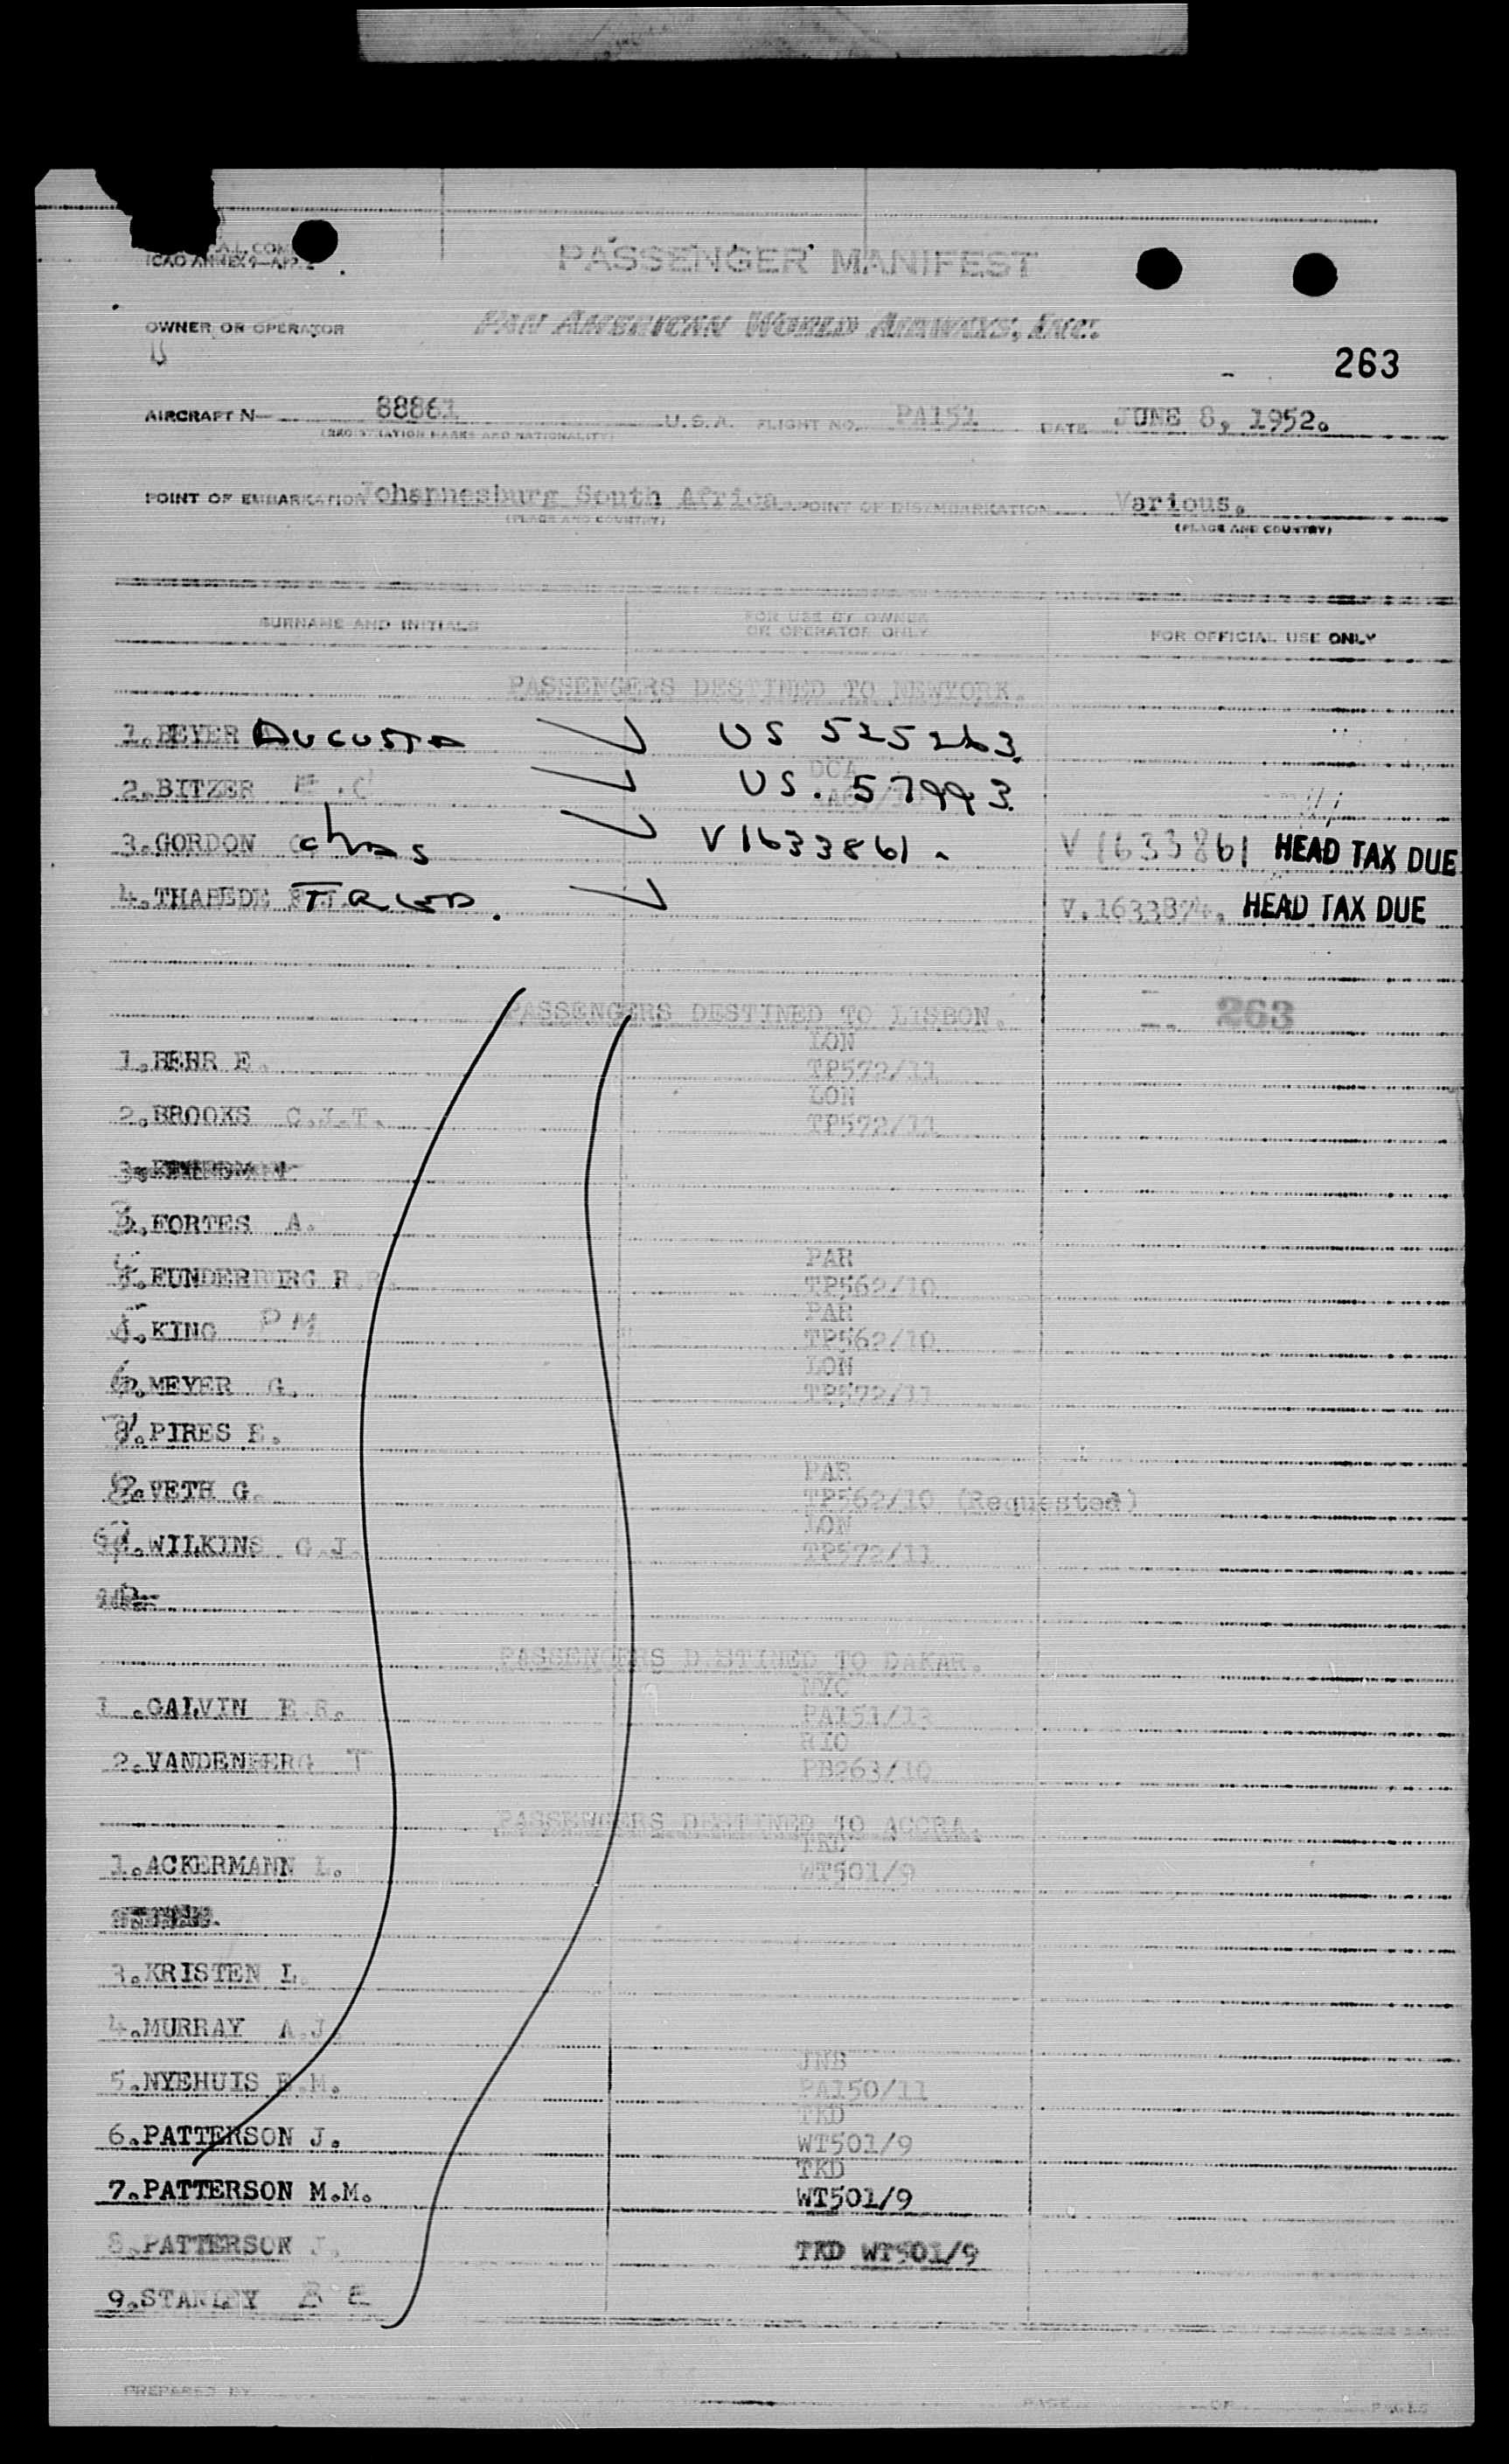 ICAO ANNEX 9—APP.
PASSENGER MANIFEST
OWNER OR OPERATOR
PAN AMERICAN WORLD AIRWAYS, INC.
263
AIRCRAFT N— 88861 U.S.A. FLIGHT NO. PA151 DATE JUNE 8, 1952.
(REGISTRATION MARKS AND NATIONALITY)
POINT OF EMBARKATION Johannesburg South Africa POINT OF DISEMBARKATION Various.
(PLACE AND COUNTRY) (PLACE AND COUNTRY)
SURNAME AND INITIALS FOR USE BY OWNER OR OPERATOR ONLY FOR OFFICIAL USE ONLY
PASSENGERS DESTINED TO NEWYORK.
1.BEYER AUGUSTA US 525263.
DCA
2.BITZER E.C US. 57993
3.GORDON Chas V1633861. V1633861 HEAD TAX DUE
4.THABEDE V.1633874. HEAD TAX DUE
PASSENGERS DESTINED TO LISBON. 263
LON
1.BEHR E. TP572/11
LON
2.BROOKS C.J.T. TP572/11
3.FORTES A.
PAR
4.FUNDERBURG R. TP562/10
PAR
5.KING PM TP562/10
LON
6.MEYER G. TP572/11
7.PIRES E.
PAR
8.VETH G. TP562/10 (Requested)
LON
9.WILKINS G.J. TP572/11
PASSENGERS DESTINED TO DAKAR.
NYC
1.GALVIN E.R. PA151/13
RIO
2.VANDENBERG T PB263/10
PASSENGERS DESTINED TO ACCRA.
TKD
1.ACKERMANN L. WT501/9
3.KRISTEN L.
4.MURRAY A.J.
JNB
5.NYEHUIS B.M. PA150/11
TKD
6.PATTERSON J. WT501/9
TKD
7.PATTERSON M.M. WT501/9
8.PATTERSON J. TKD WT501/9
9.STANLEY
PREPARED BY PAGE OF PAGES